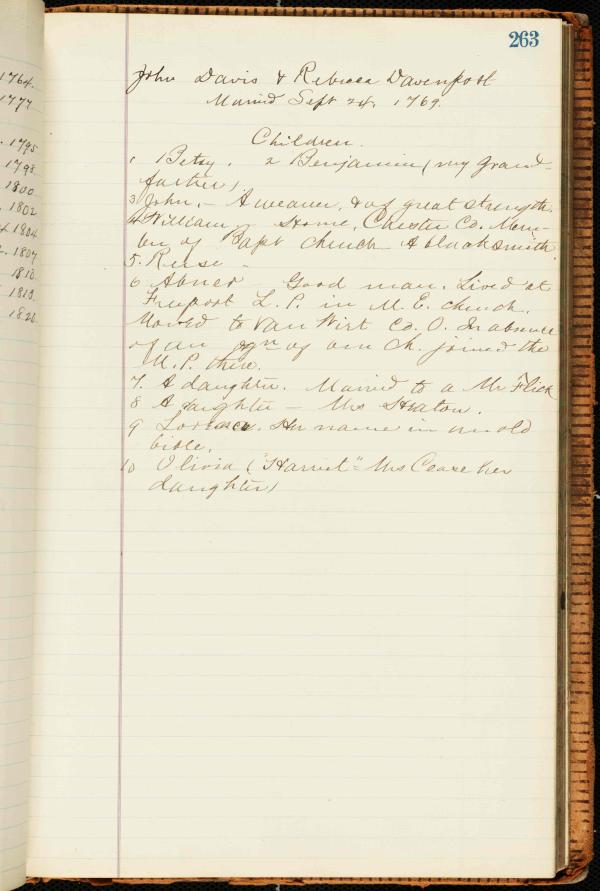 1764.
1777
. 1795
1798.
1800.
. 1802
1804
. 1807
1810.
. 1813.
182
263
John Davis & Rebecca Davenport
Maried Sept 24, 1769.
Children.
1 Betsy. 2 Benjamin (my grand-
father)
3 John, - A weaver, & of great strength.
4 William - Stone, Chester Co. Mem-
ber of Bapt church A blacksmith.
5. Reese -
6 Abner Good man. Lived at
Freeport L. P. in M. E. church.
Moved to Van Wirt Co. O. In absence
of an of our ch. joined the
M. P. there.
7. A daughter. Maried to a Mr Flick
8 A daighter - Mrs Straton.
9 Her name in an old
bible.
10 Olivia ("Harriet" = Mrs Cease her
daughter)